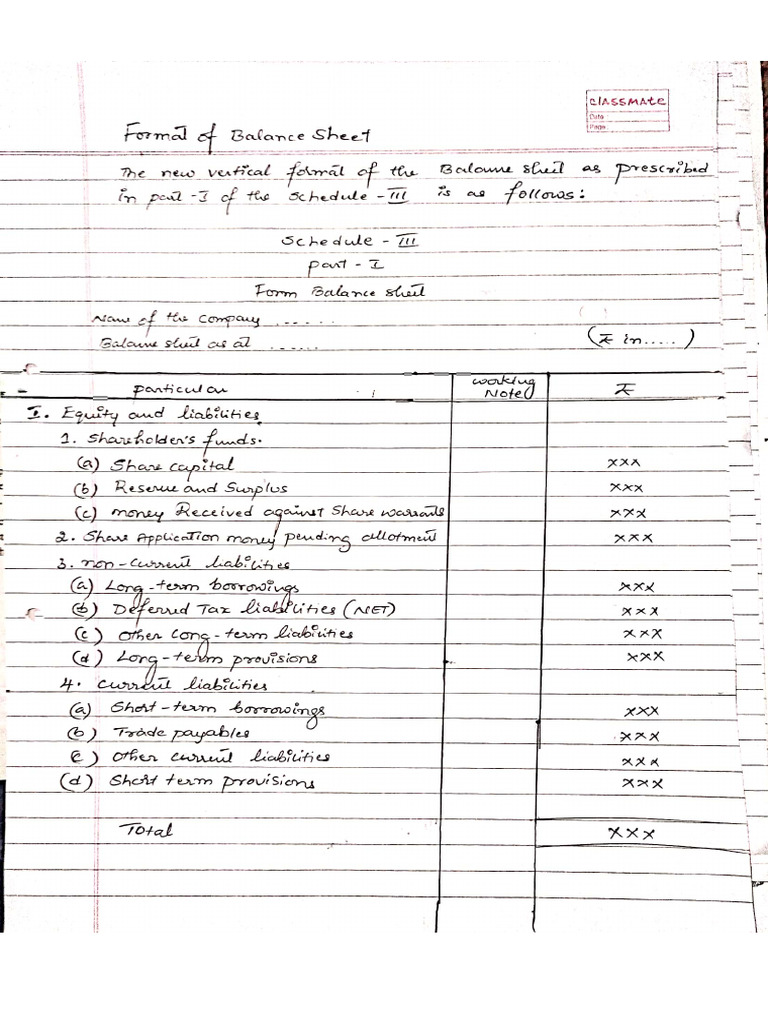 CLASSMATE
Date
Page
Format of Balance Sheet
The new vertical format of the Balance sheet as prescribed
in part -I of the schedule - III is as follows:
Schedule - III
part - I
Form Balance sheet
Name of the Company ......
Balance sheet as at ......
(₹ in.....)
particular
working Note
₹
I. Equity and liabilities
1. Shareholder's funds.
(a) Share capital XXX
(b) Reserve and Surplus XXX
(c) money Received against Share warrants XXX
2. Share Application money pending allotment XXX
3. non-current liabilities
(a) Long-term borrowings XXX
(b) Deferred Tax liabilities (NET) XXX
(c) Other Long-term liabilities XXX
(d) Long-term provisions XXX
4. Current liabilities
(a) Short-term borrowings XXX
(b) Trade payables XXX
(c) Other current liabilities XXX
(d) Short term provisions XXX
Total XXX